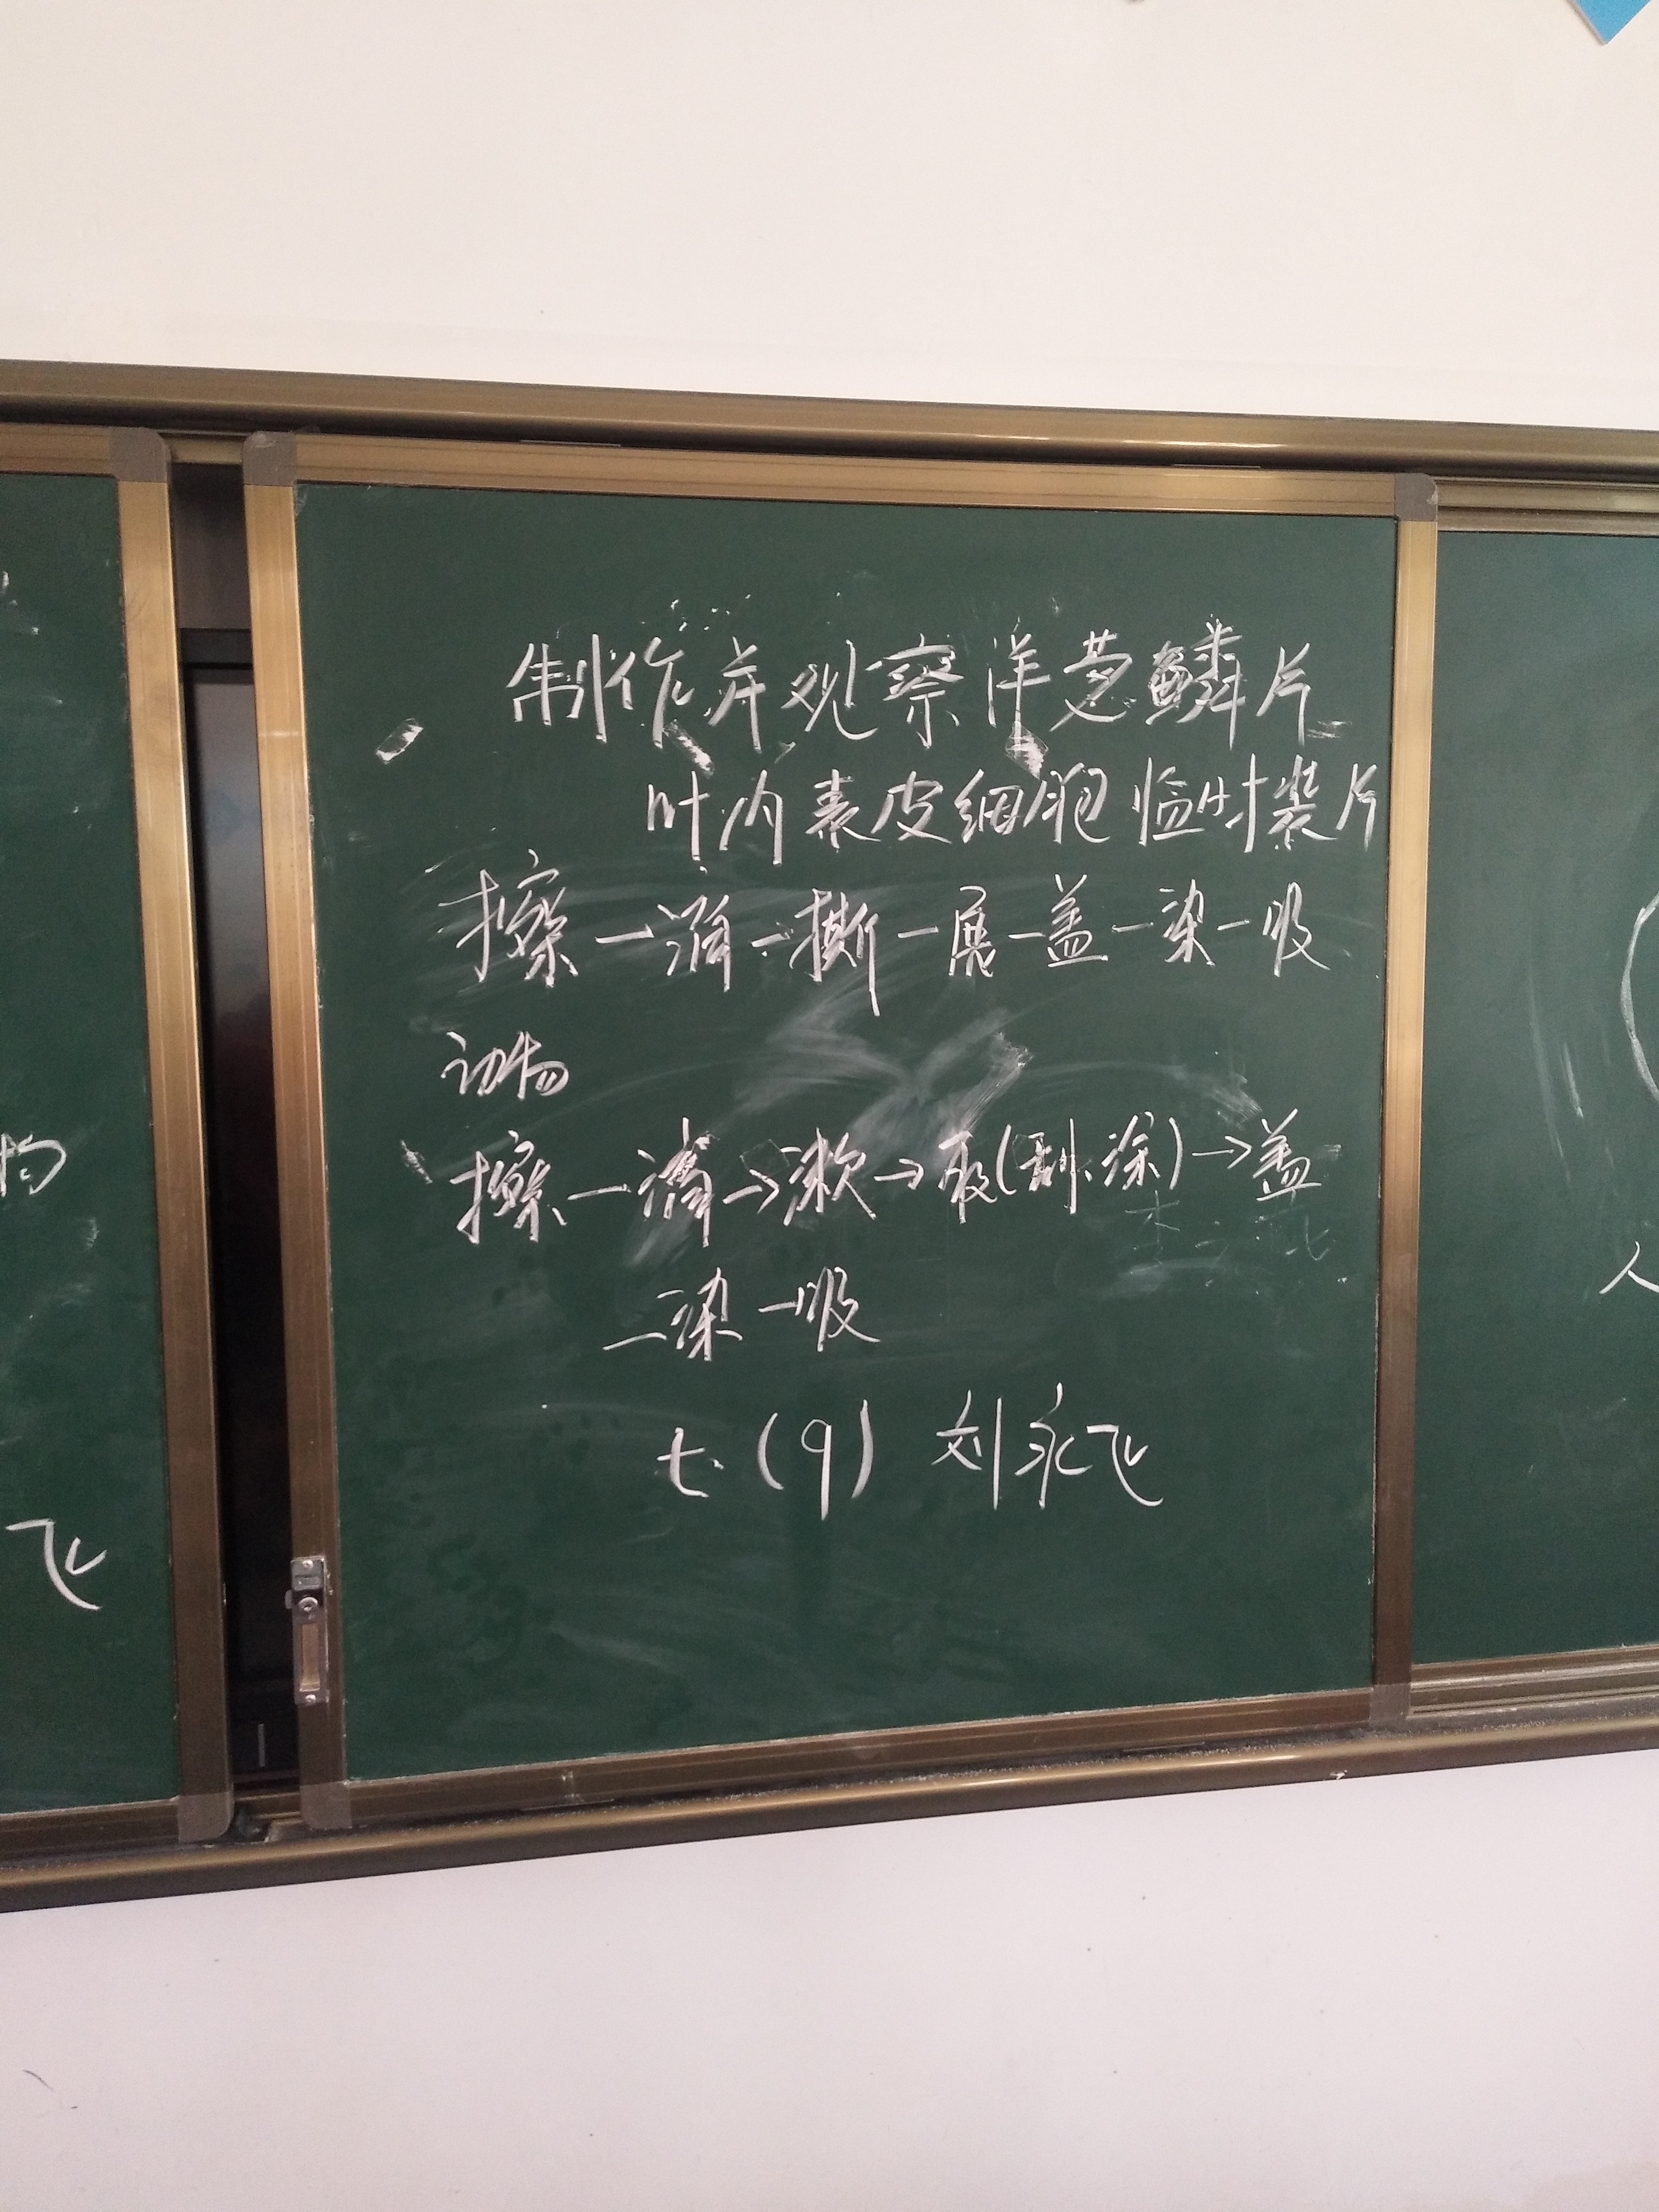 制作并观察洋葱鳞片
叶内表皮细胞临时装片
擦一滴一撕一展一盖一染一吸
动物
擦一滴→漱→取(刮、涂)→盖
一染一吸
七(9) 刘永飞
飞
人